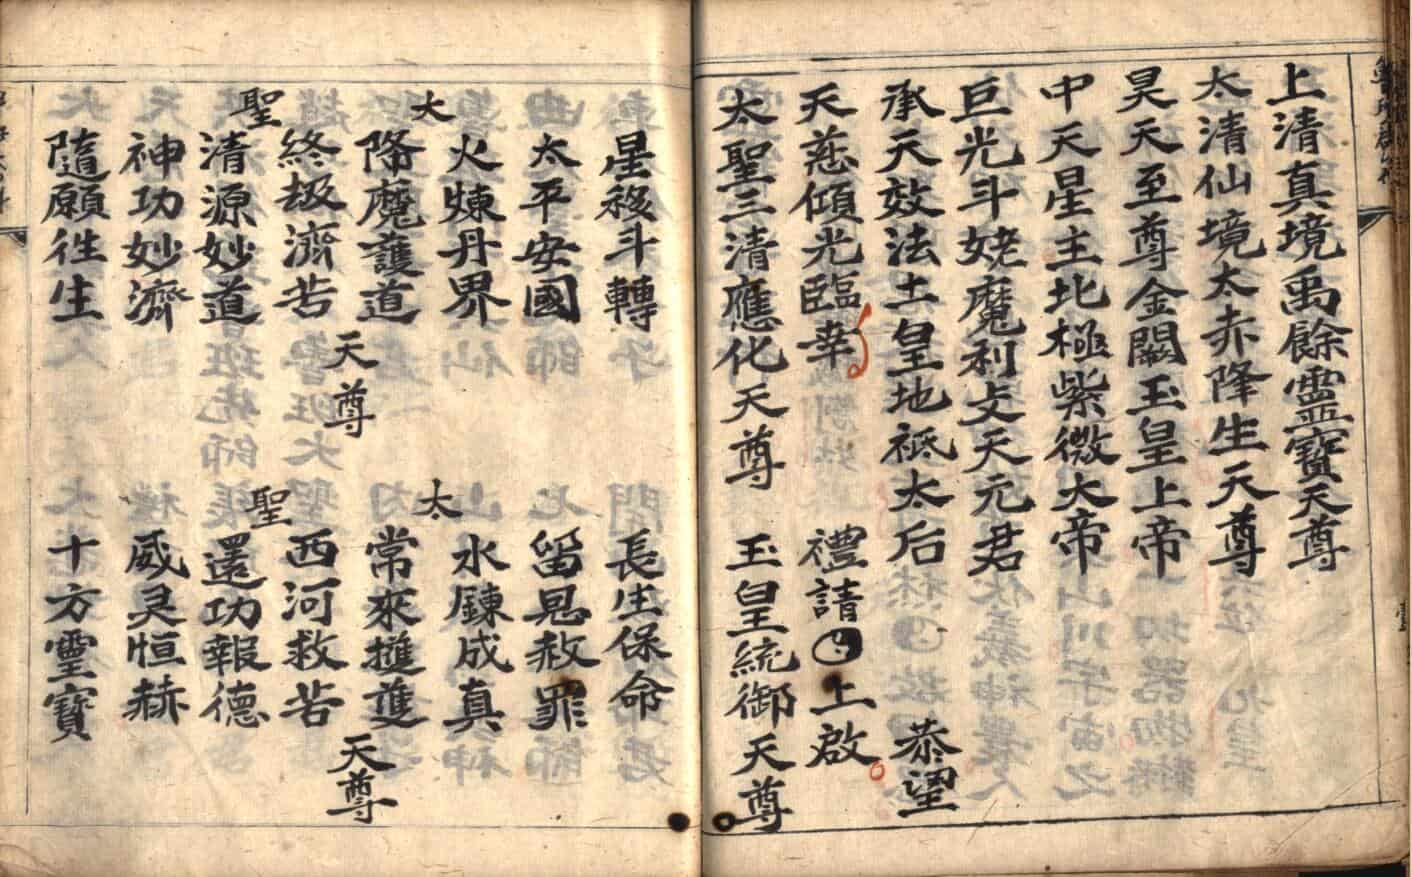 上清真境禹餘靈寶天尊
太清仙境太赤降生天尊
昊天至尊金闕玉皇上帝
中天星主北極紫微大帝
巨光斗姥魔利攴天元君
承天效法土皇地祗太后 恭望
天慈傾光臨幸 禮請 上啟
太聖三清應化天尊 玉皇統御天尊
星移斗轉 長生保命
太平安國 留恩赦罪
火煉丹界 水鍊成真
太 太
降魔護道 常來擁護
天尊 天尊
終劫濟苦 西河救苦
聖 聖
清源妙道 還功報德
神功妙濟 威灵恒赫
隨願徃生 十方靈寶